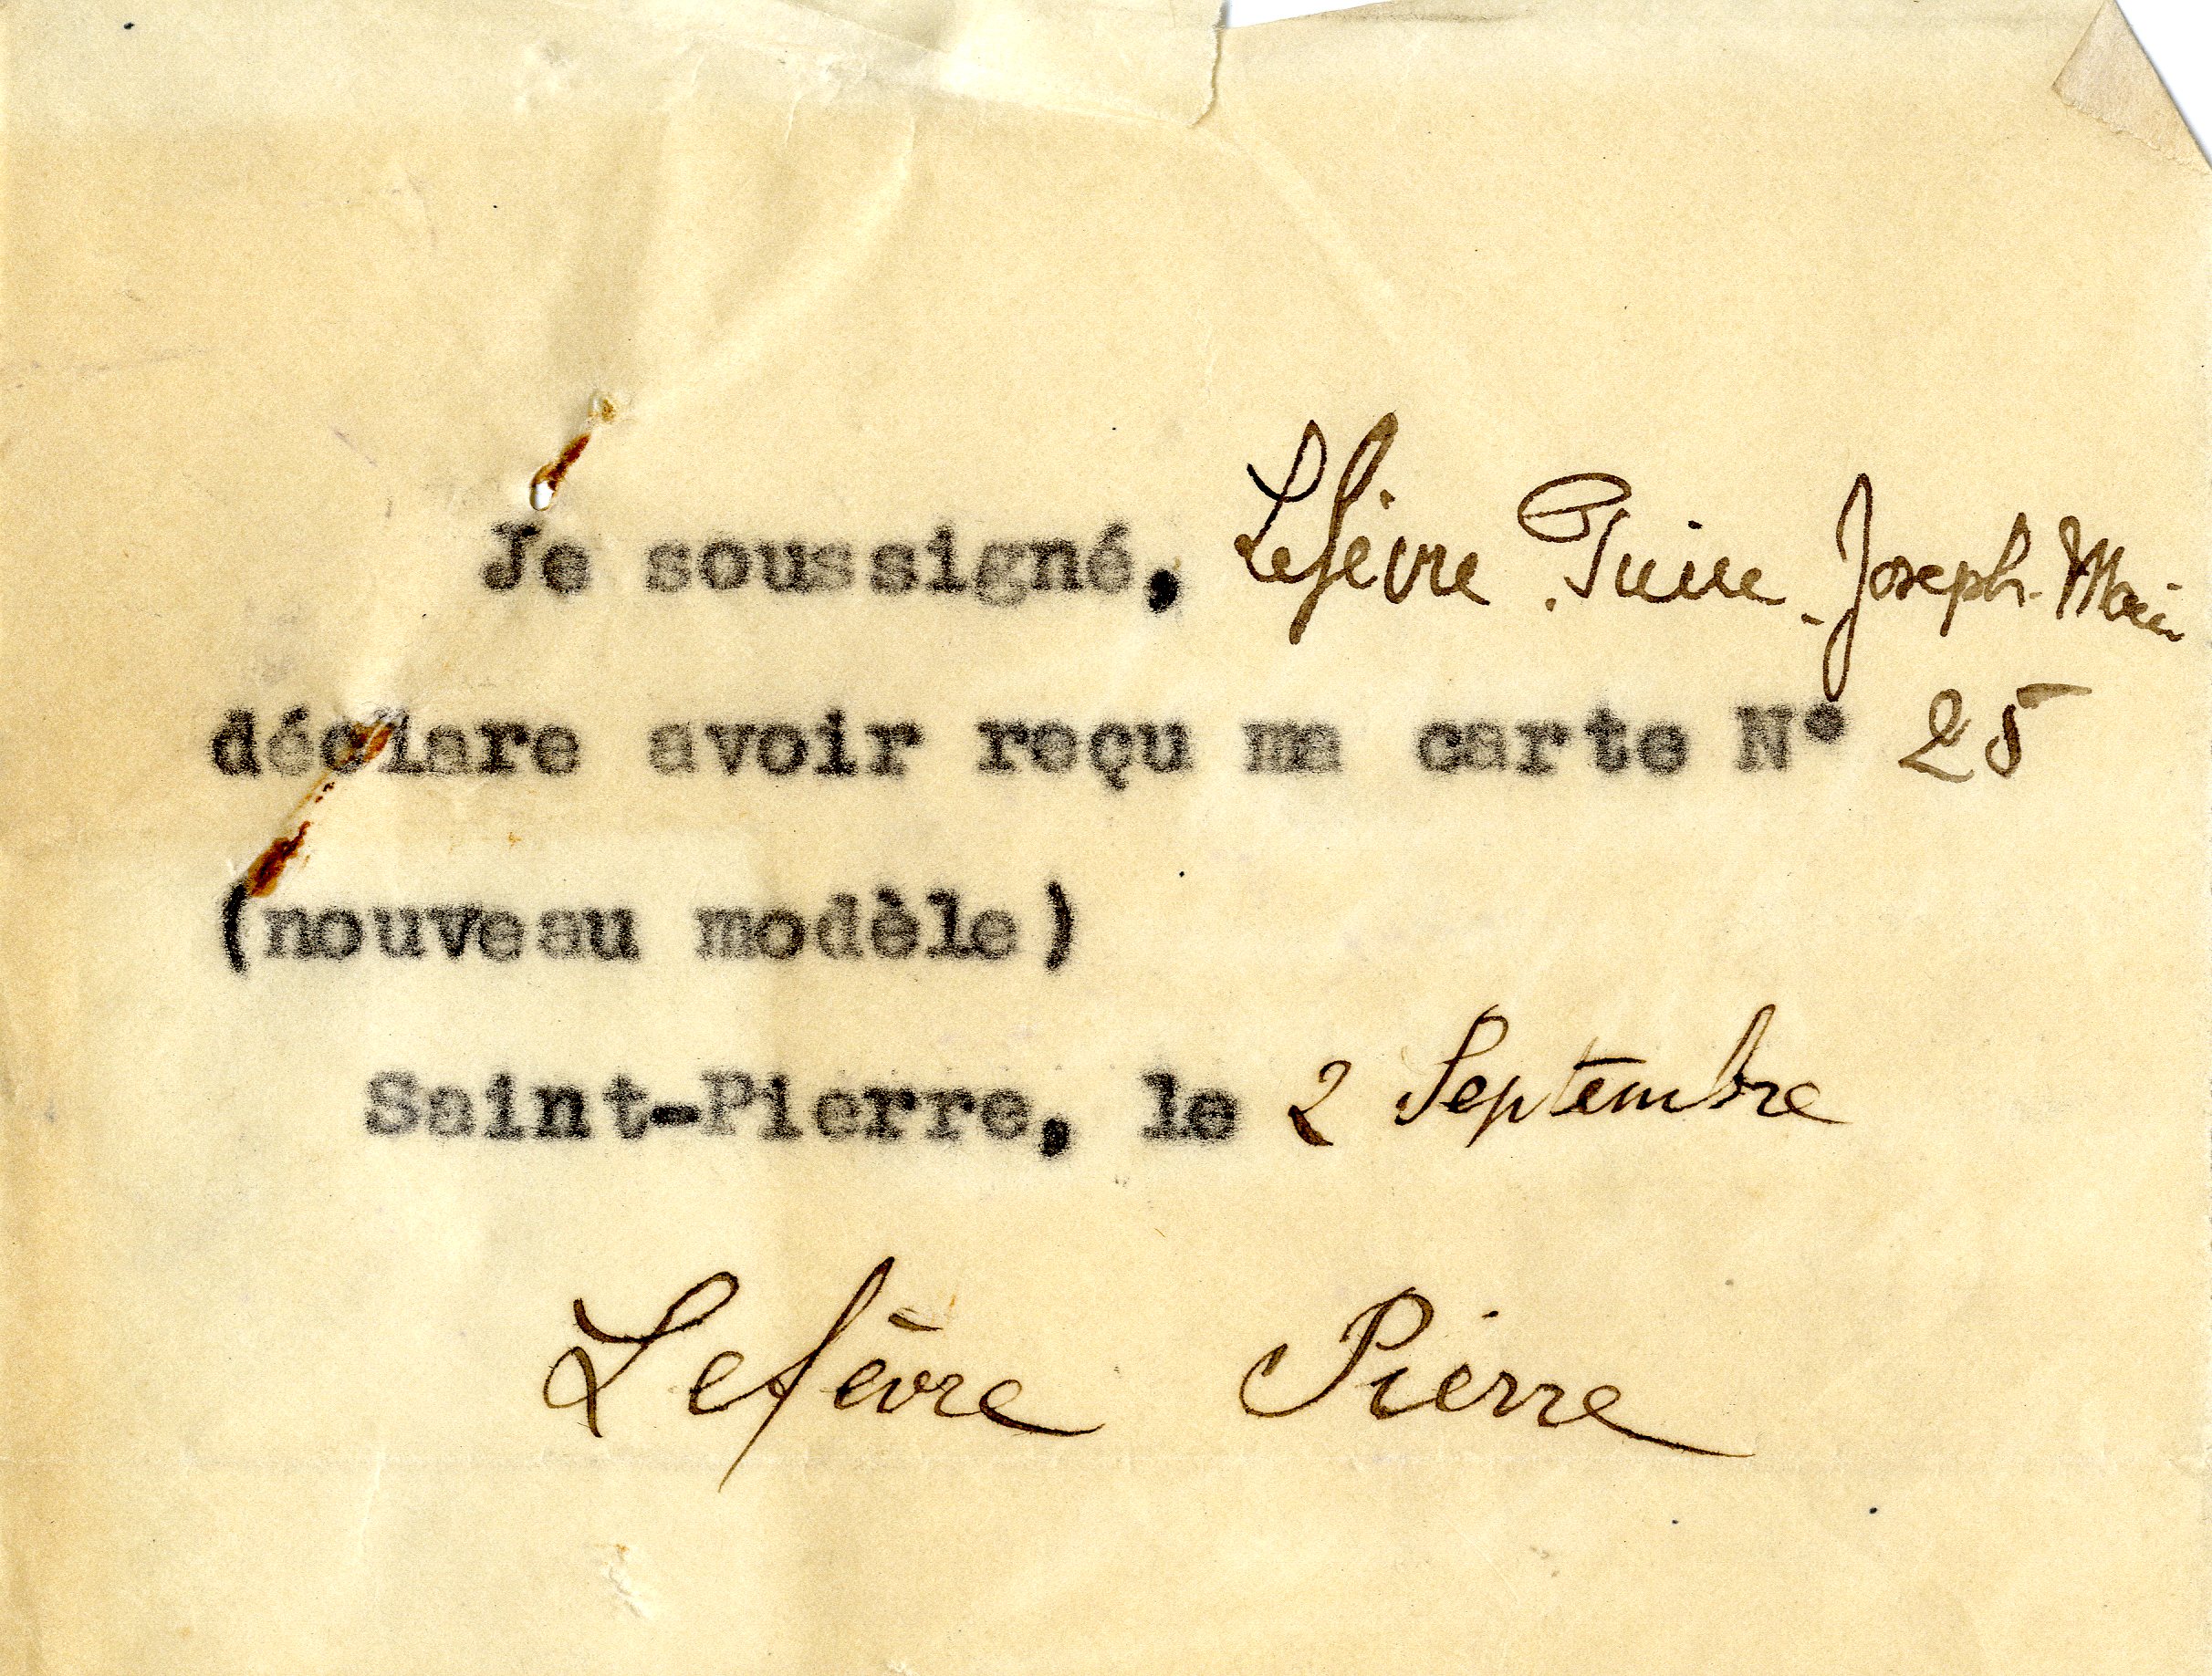 Je soussigné, Lefèvre Pierre. Joseph. Marie
déclare avoir reçu ma carte N° 25
(nouveau modèle)
Saint-Pierre, le 2 Septembre
Lefèvre Pierre